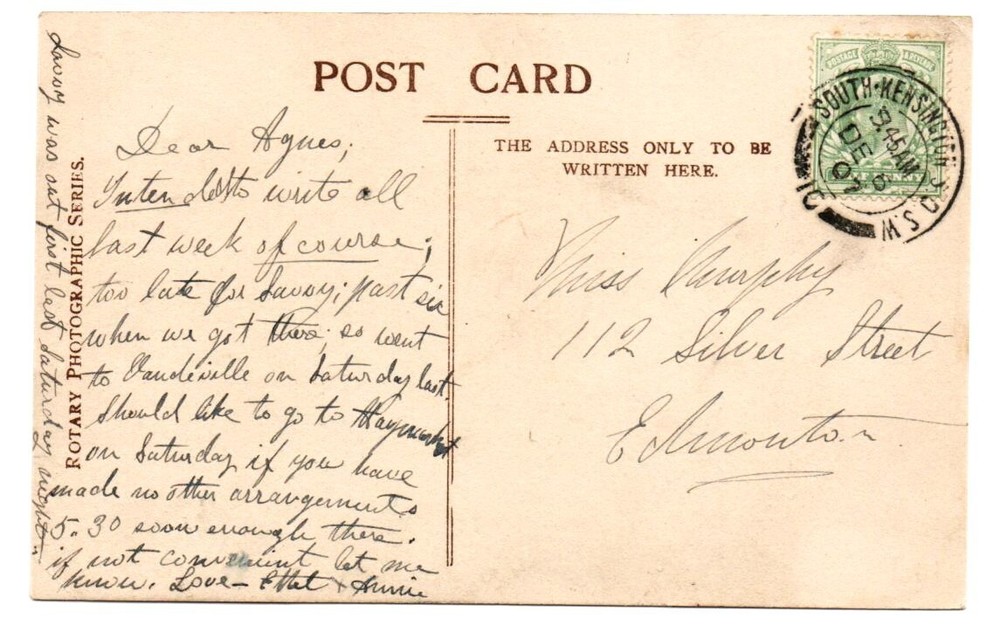 POST CARD
THE ADDRESS ONLY TO BE
WRITTEN HERE.
SOUTH·KENSINGTON S.O. S.W.
9.45 AM
DE
07
10
Dear Agnes,
Intended to write all
last week of course;
too late for Savoy; past six
when we got there; so went
to Vaudeville on Saturday last.
Should like to go to Haymarket
on Saturday if you have
made no other arrangements
5.30 soon enough there.
if not convenient let me
know. Love – Ethel + Annie
Savoy was out first last Saturday night.
ROTARY PHOTOGRAPHIC SERIES.
Miss Murphy
112 Silver Street
Edmonton